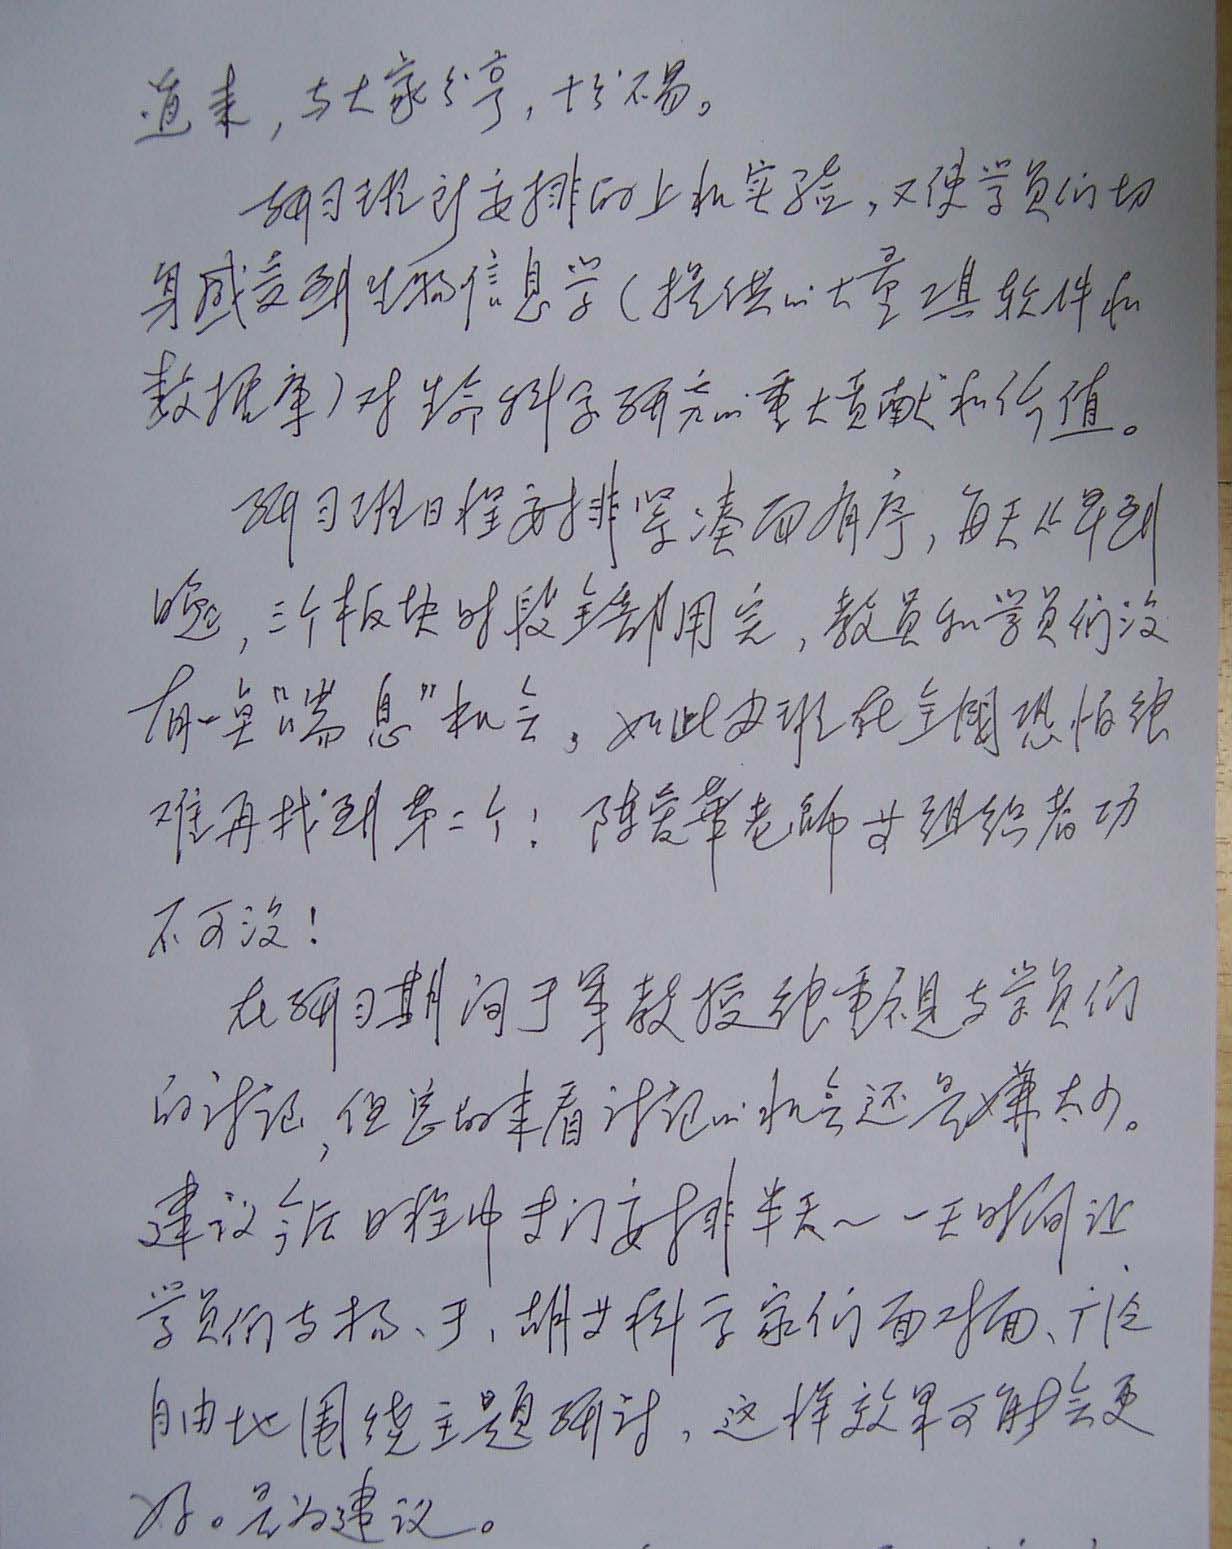 道来，与大家分享，十分不易。
研习班所安排的上机实验，又使学员们切
身感受到生物信息学（提供的大量工具软件和
数据库）对生命科学研究的重大贡献和价值。
研习班日程安排紧凑而有序，每天从早到
晚，三个板块时段全部用完，教员和学员们没
有一点“喘息”机会，如此办班在全国恐怕很
难再找到第二个！陈爱華老師等组织者功
不可没！
在研习期间于军教授很重视与学员们
的讨论，但总的来看讨论的机会还是嫌太少。
建议今后日程中专门安排半天～一天时间让
学员们与杨、于、胡等科学家们面对面、
自由地围绕主题研讨，这样效果可能会更
好。是为建议。